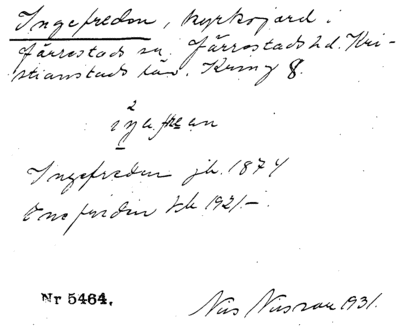 Ingefreden, kyrkojord i
Järrestads sn. Järrestads hd. Kri-
stianstads län. Kring 8.
Ingefreden jb. 1874
Enefreden tk 1921.-
Nr 5464.
Nils Nilsson 1931.